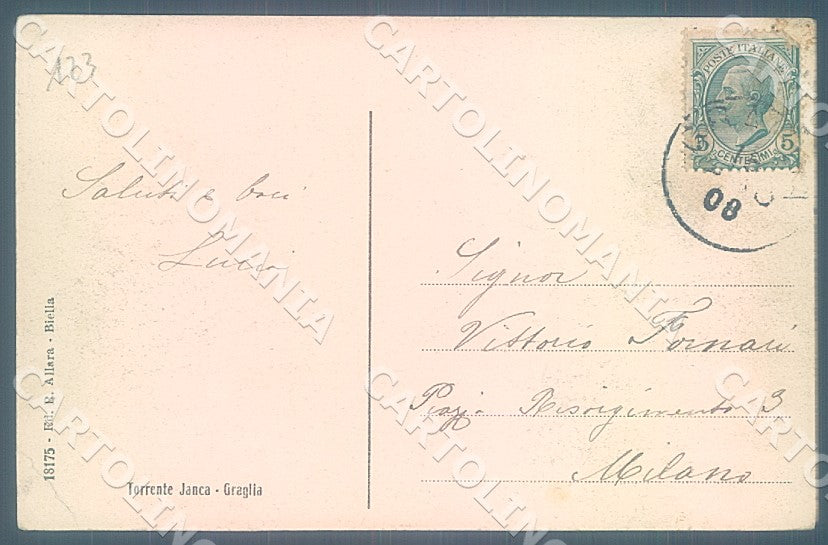 123
POSTE ITALIANE
5 5
CENTESIMI
08
Saluti e baci
Signor
Vittorio Fornari
Piazz. Risorgimento 3
Milano
18175 - Ed. E. Allara - Biella
Torrente Janca - Graglia
CARTOLINOMANIA
CARTOLINOMANIA
CARTOLINOMANIA
CARTOLINOMANIA
CARTOLINOMANIA
CARTOLINOMANIA